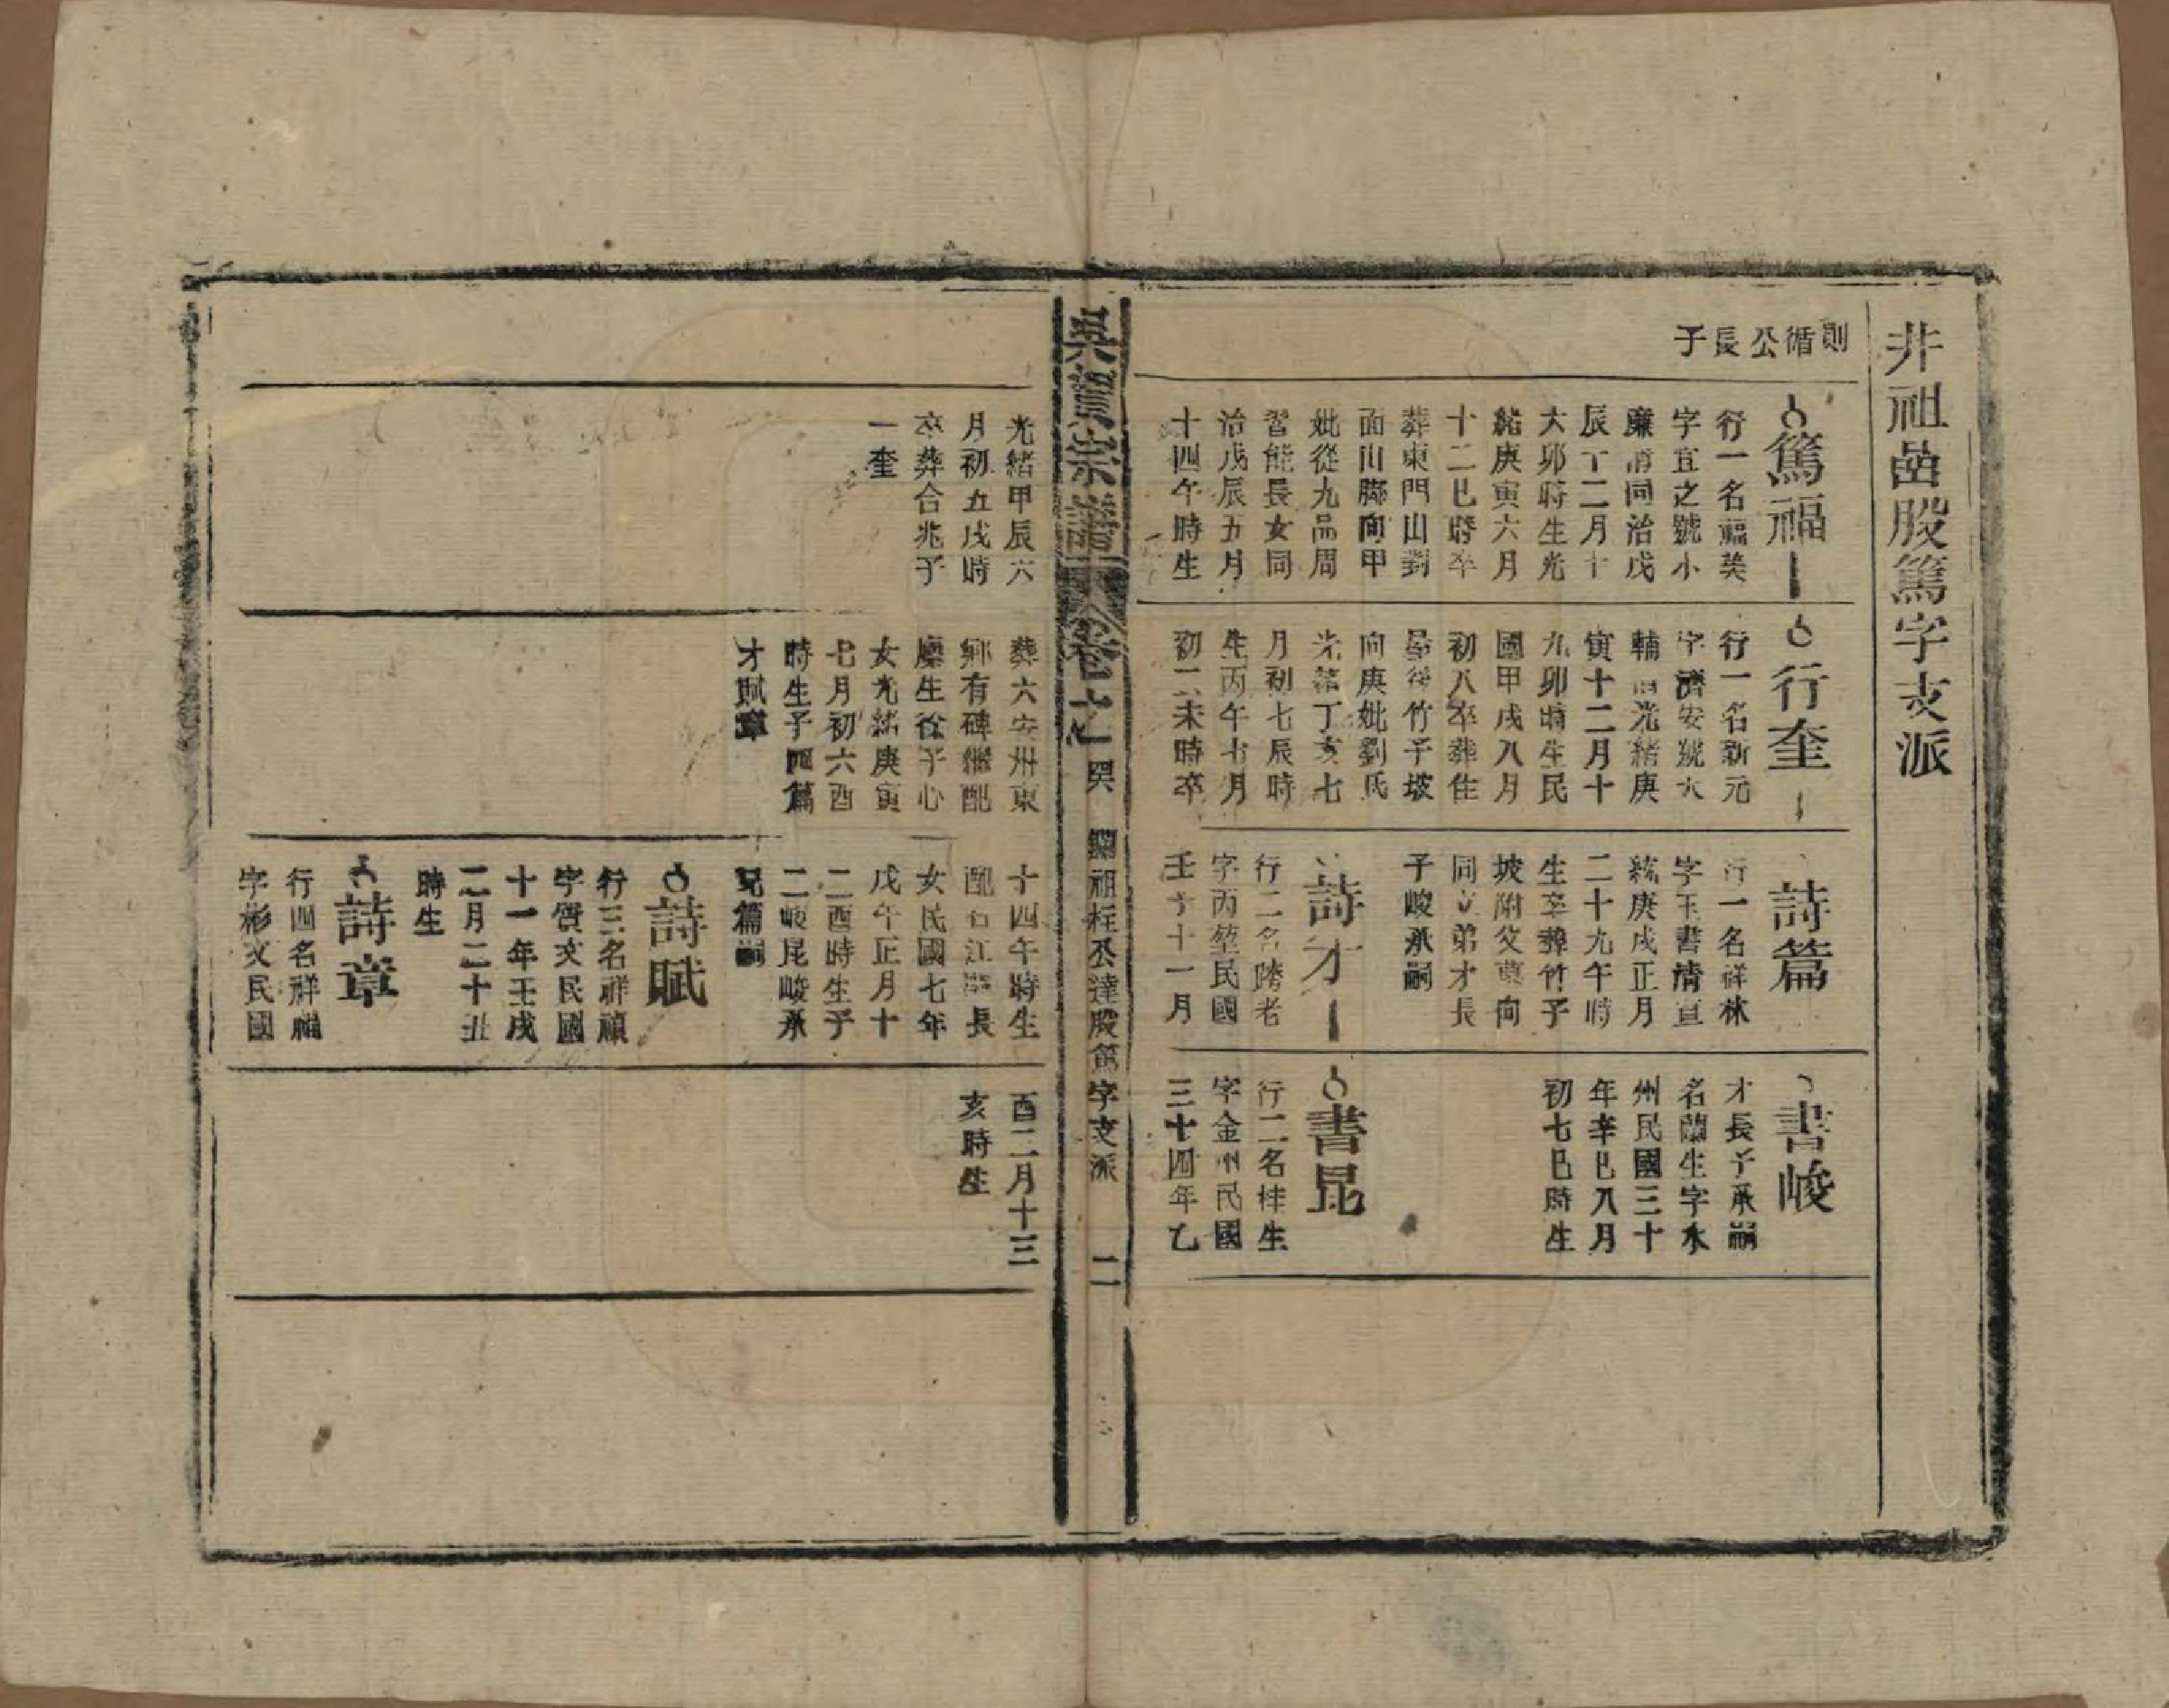 井祖嵒股篤字支派
則循公長子
篤福
行一名福美
字宜之號小
廉清同治戊
辰十二月十
六卯時生光
緒庚寅六月
十二巳時卒
葬東門山對
面山腳向甲
妣從九品周
習能長女同
治戊辰五月
十四午時生
行奎
行一名新元
字濟安號大
輔清光緒庚
寅十二月十
九卯時生民
國甲戌八月
初八卒葬住
屋後竹子坡
向庚妣劉氏
光緒丁亥七
月初七辰時
生丙午七月
初二未時卒
詩篇
行一名祥林
字玉書清宣
統庚戌正月
二十九午時
生卒葬竹子
坡附父墓向
同立弟才長
子峻承嗣
詩才
行二名 老
字丙 民國
壬子十一月
書峻
才長子承嗣
名蘭生字水
州民國三十
年辛巳八月
初七巳時生
書昆
行二名桂生
字金州民國
三十四年乙
吳 宗譜
卷之一 吳 祖 丞達股篤字支派 二
光緒甲辰六
月初五戌時
卒葬合兆子
一奎
葬六安州東
鄉有碑繼配
廪生徐子心
女光緒庚寅
七月初六酉
時生子四篇
才賦章
十四午時生
配石江 長
女民國七年
戊午正月十
二酉時生子
二峻昆峻承
兄篇嗣
詩賦
行三名祥禎
字質文民國
十一年壬戌
二月二十丑
時生
詩章
行四名祥福
字彬文民國
酉二月十三
亥時生